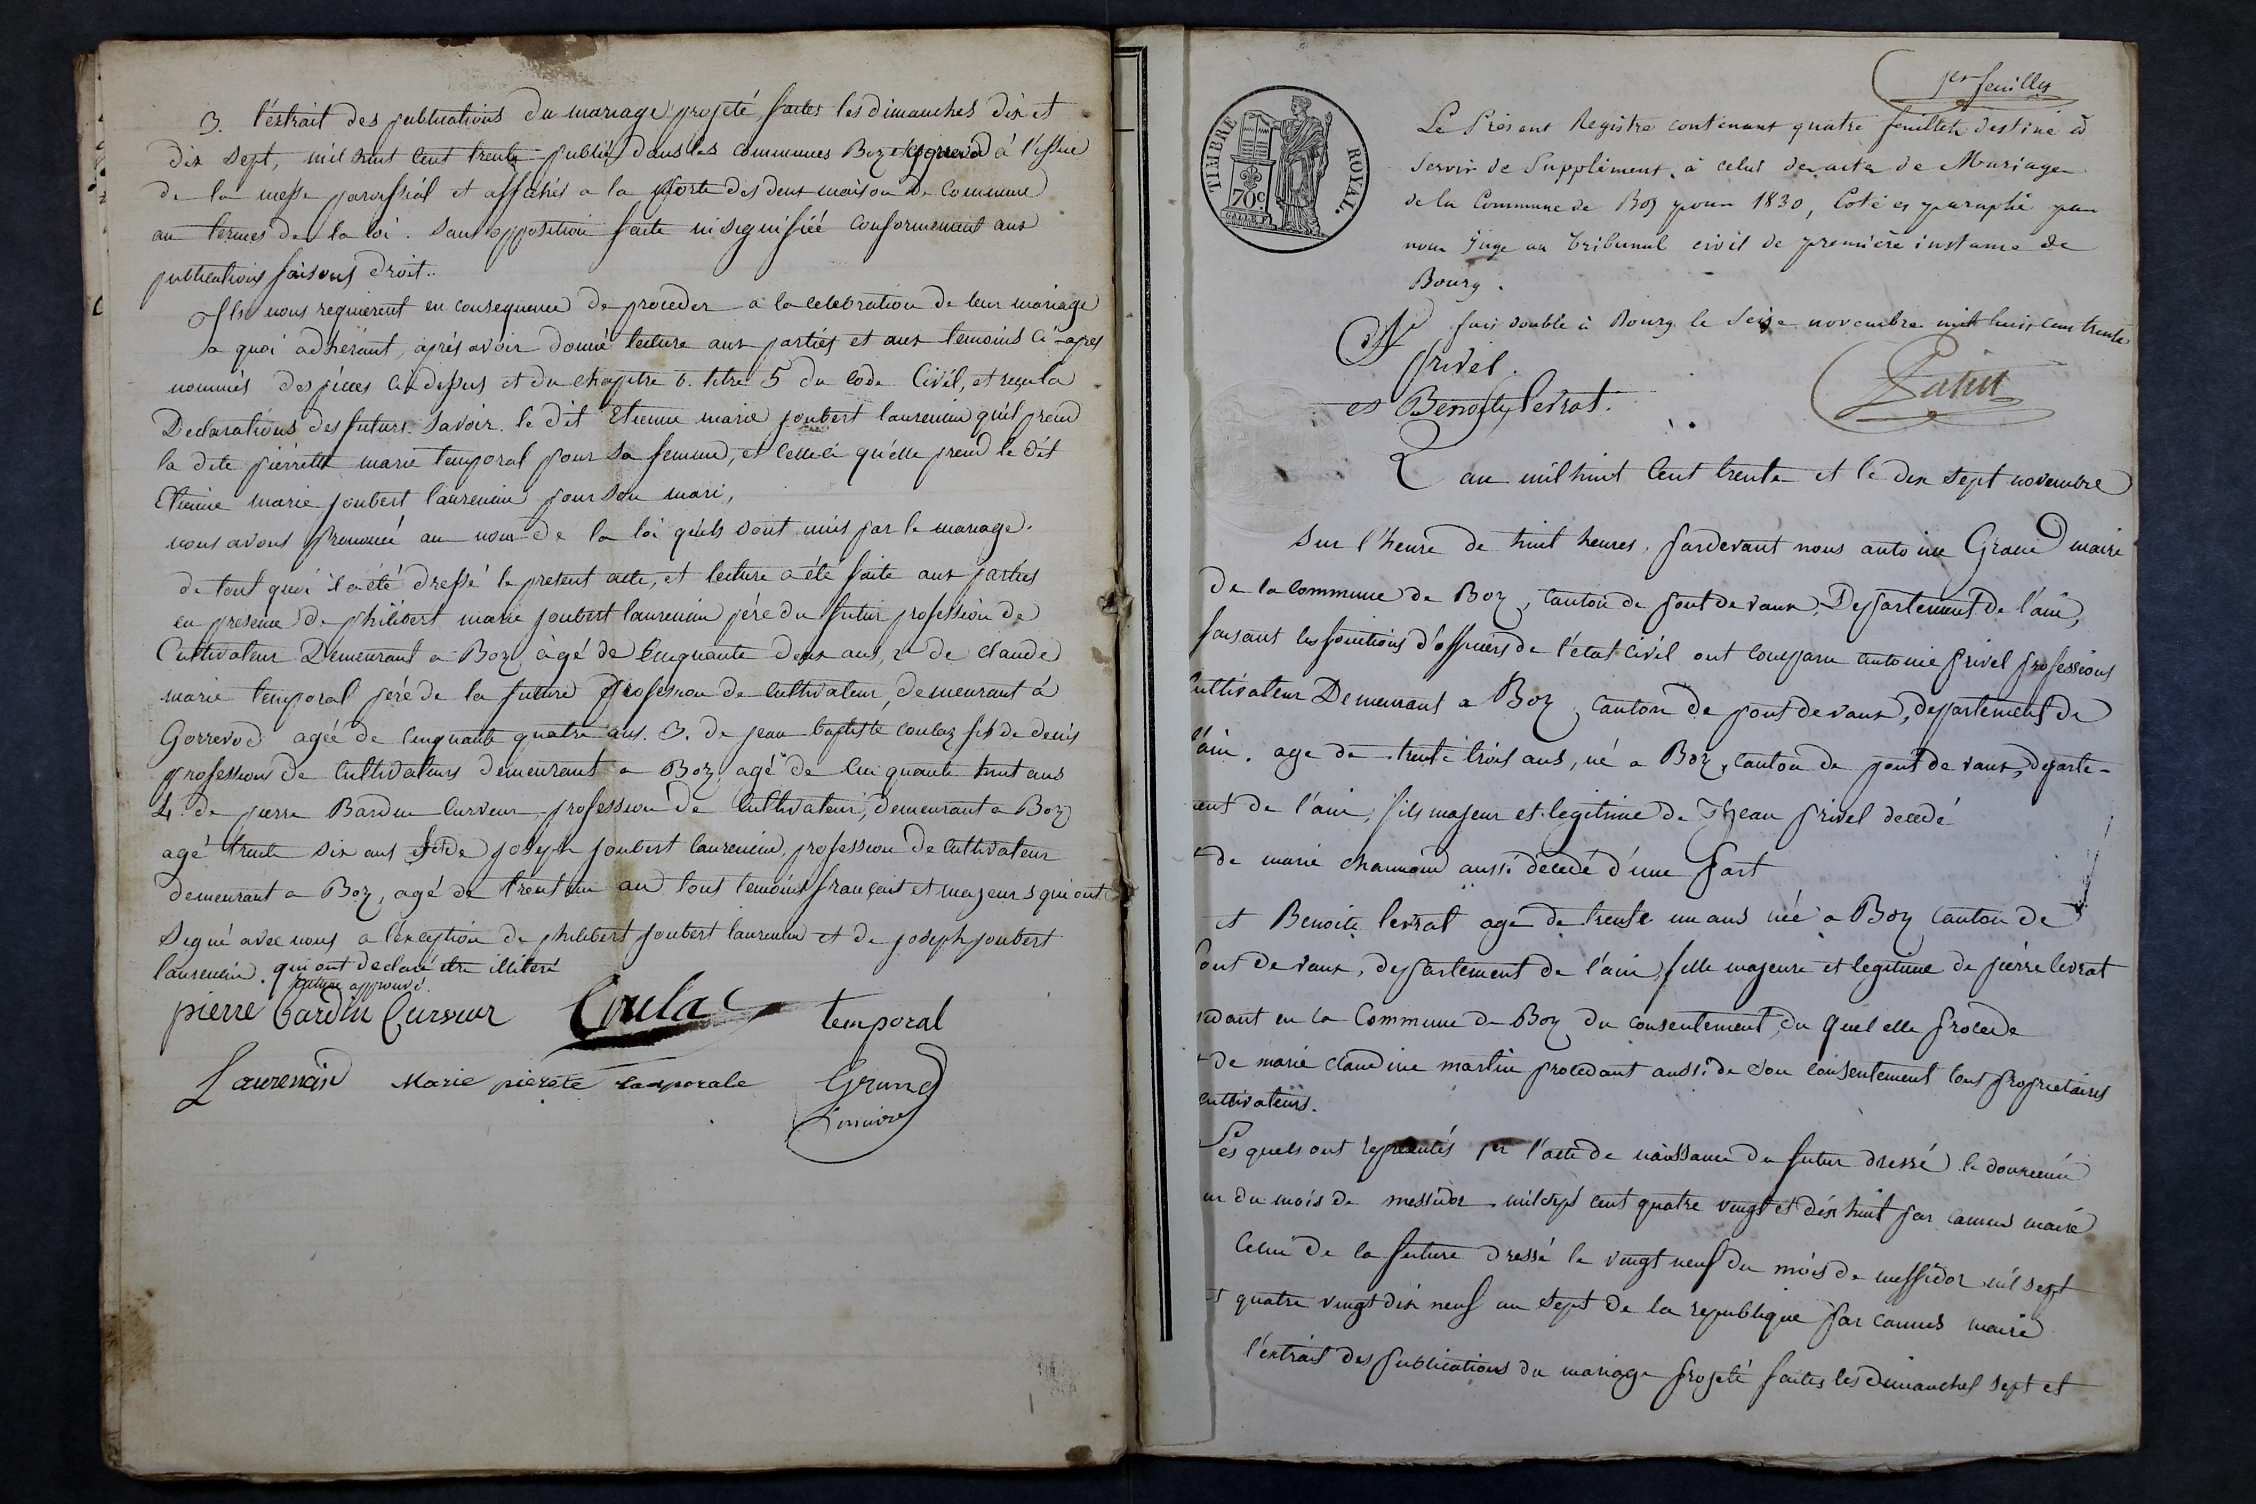 3. l'extrait des publications du mariage projeté faites les dimanches dix et
dix sept, mil huit cent trente publié dans les communes Boz et Gorrevod à l'issue
de la messe paroissial et affichés a la porte des deux maison de Commune
au termes de la loi. sans opposition faite ni signifiée conformement aux
publications faisons droit..
Ils nous requierent en consequence de proceder a la celebration de leur mariage
a quoi adhérant, après avoir donné lecture aux parties et aux temoins ci-apres
nommés des pièces ci-dessus et du chapitre 6. titre 5 du code Civil, et reçu la
Declarations des futurs. savoir. le dit Etienne marie joubert laurencin qu'il prend
la dite pierrette marie temporal pour sa femme, et celle ci qu'elle prend le dit
Etienne marie joubert laurencin pour son mari,
nous avons prononcé au nom de la loi qu'ils sont unis par le mariage.
de tout quoi il a été dressé le present acte, et lecture a été faite aux parties
en presence de philibert marie joubert laurencin père du futur profession de
Cultivateur Demeurant a Boz, agé de Cinquante deux ans, 2 de claude
marie temporal père de la future profession de cultivateur, demeurant á
Gorrevod agée de cinquante quatre ans. 3. de jean baptiste coulaz fils de denis
profession de Cultivateurs demeurant a Boz, agé de cin quante huit ans
4. de pierre Bardin Curveur profession de Cultivateur, demeurant a Boz
agé trente six ans de joseph joubert laurencin, profession de Cultivateur
demeurant a Boz, agé de trent un an tous temoins français et majeurs qui ont
Signé avec nous a l'exception de philibert joubert laurencin et de joseph joubert
laurencin. qui ont declaré être illiteré
approuvé.
pierre Bardin Curveur Coulac temporal
Laurencin Marie pierete temporale Grand
maire
1er feuillet
TIMBRE ROYAL.
70c
Le Présent Registre contenant quatre feuillets destiné à
Servir de Supplément, à celui des actes de Mariages
de la Commune de Boz pour 1830, Coté et paraphé par
nous Juge au Tribunal civil de première instance de
Bourg.
fais double à Bourg le Seize novembre mil huit cent trente
Privel.
et Benoite levrat.
L an mil huit Cent trente et le dix sept novembre
sur l'heure de huit heures, pardevant nous antoine Grand maire
de la commune de Boz, canton de pont de vaux, Departement de l'ain,
faisant les fonctions d'officiers de l'état civil ont comparu antoine privel professions
Cultivateur Demeurant a Boz, canton de pont de vaux, departement de
l'ain. age de trente trois ans, né a Boz, canton de pont de vaux, departe-
ent de l'ain, fils majeur et legitime de Jean privel decedé
de marie chamond aussi décedé d'une part
et Benoite levrat agé de trente un ans née a Boz canton de
Pont de vaux, departement de l'ain, fille majeure et legitime de pierre levrat
edant en la Commune de Boz du consentement du quel elle procede
de marie claudine martin procedant aussi de son consentement tous proprietaires
cultivateurs.
Les quels ont representés 1er l'acte de naissance du futur dressé le douzieme
ur du mois de messidor mil sept cent quatre vingt et dix huit par camus maire
Celui de la future dressé le vingt neuf du mois de messidor mil sept
t quatre vingt dix neuf an sept de la republique par camus maire
l'extrait des publications du mariage projeté faites les dimanches sept et